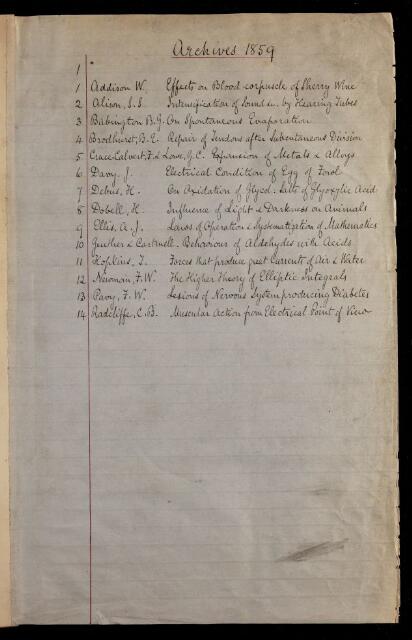 Archives 1859
1
1 Addison W., Effects on Blood-corpuscle of Sherry Wine
2 Alison, S.S. Intensification of Sound &c. by Hearing Tubes
3 Babington B.G. On Spontaneous Evaporation
4 Brodhurst, B.E. Repair of Tendons after Subcutaneous Division
5 Crace-Calvert, F. & Lowe, G.C. Expansion of Metals & Alloys
6 Davy, J. Electrical Condition of Egg of Fowl
7 Debus, H. On Oxidation of Glycol. Salts of Glyoxylic Acid
8 Dobell, H. Influence of Light & Darkness on Animals
9 Ellis, A. J. Laws of Operation & Systematization of Mathematics
10 Geuther & Cartmell. Behaviour of Aldehydes with Acids
11 Hopkins, T. Forces that produce great Currents of Air & Water
12 Newman, F.W. The Higher Theory of Elliptic Integrals
13 Pavy, F. W. Lesions of Nervous System producing Diabetes
14 Radcliffe, C. B. Muscular Action from Electrical Point of View